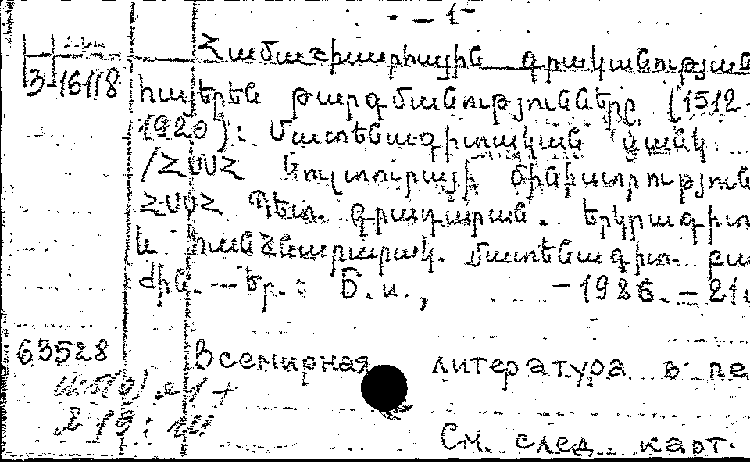 - 1 -
Համաշխարհային գրականության
3-16118 հայերեն թարգմանությունները (1512-
1920): Մատենագիտական ցանկ
/ՀՍՍՀ Կուլտուրայի մինիստրություն
ՀՍՍՀ Պետ. գրադարան. Երկրագիտ
և հանձնարարակ. մատենագիտ. բա
ժին. — Եր.: Բ.и., -1986. - 21
63528 Всемирная литература в пе
См. след. карт.